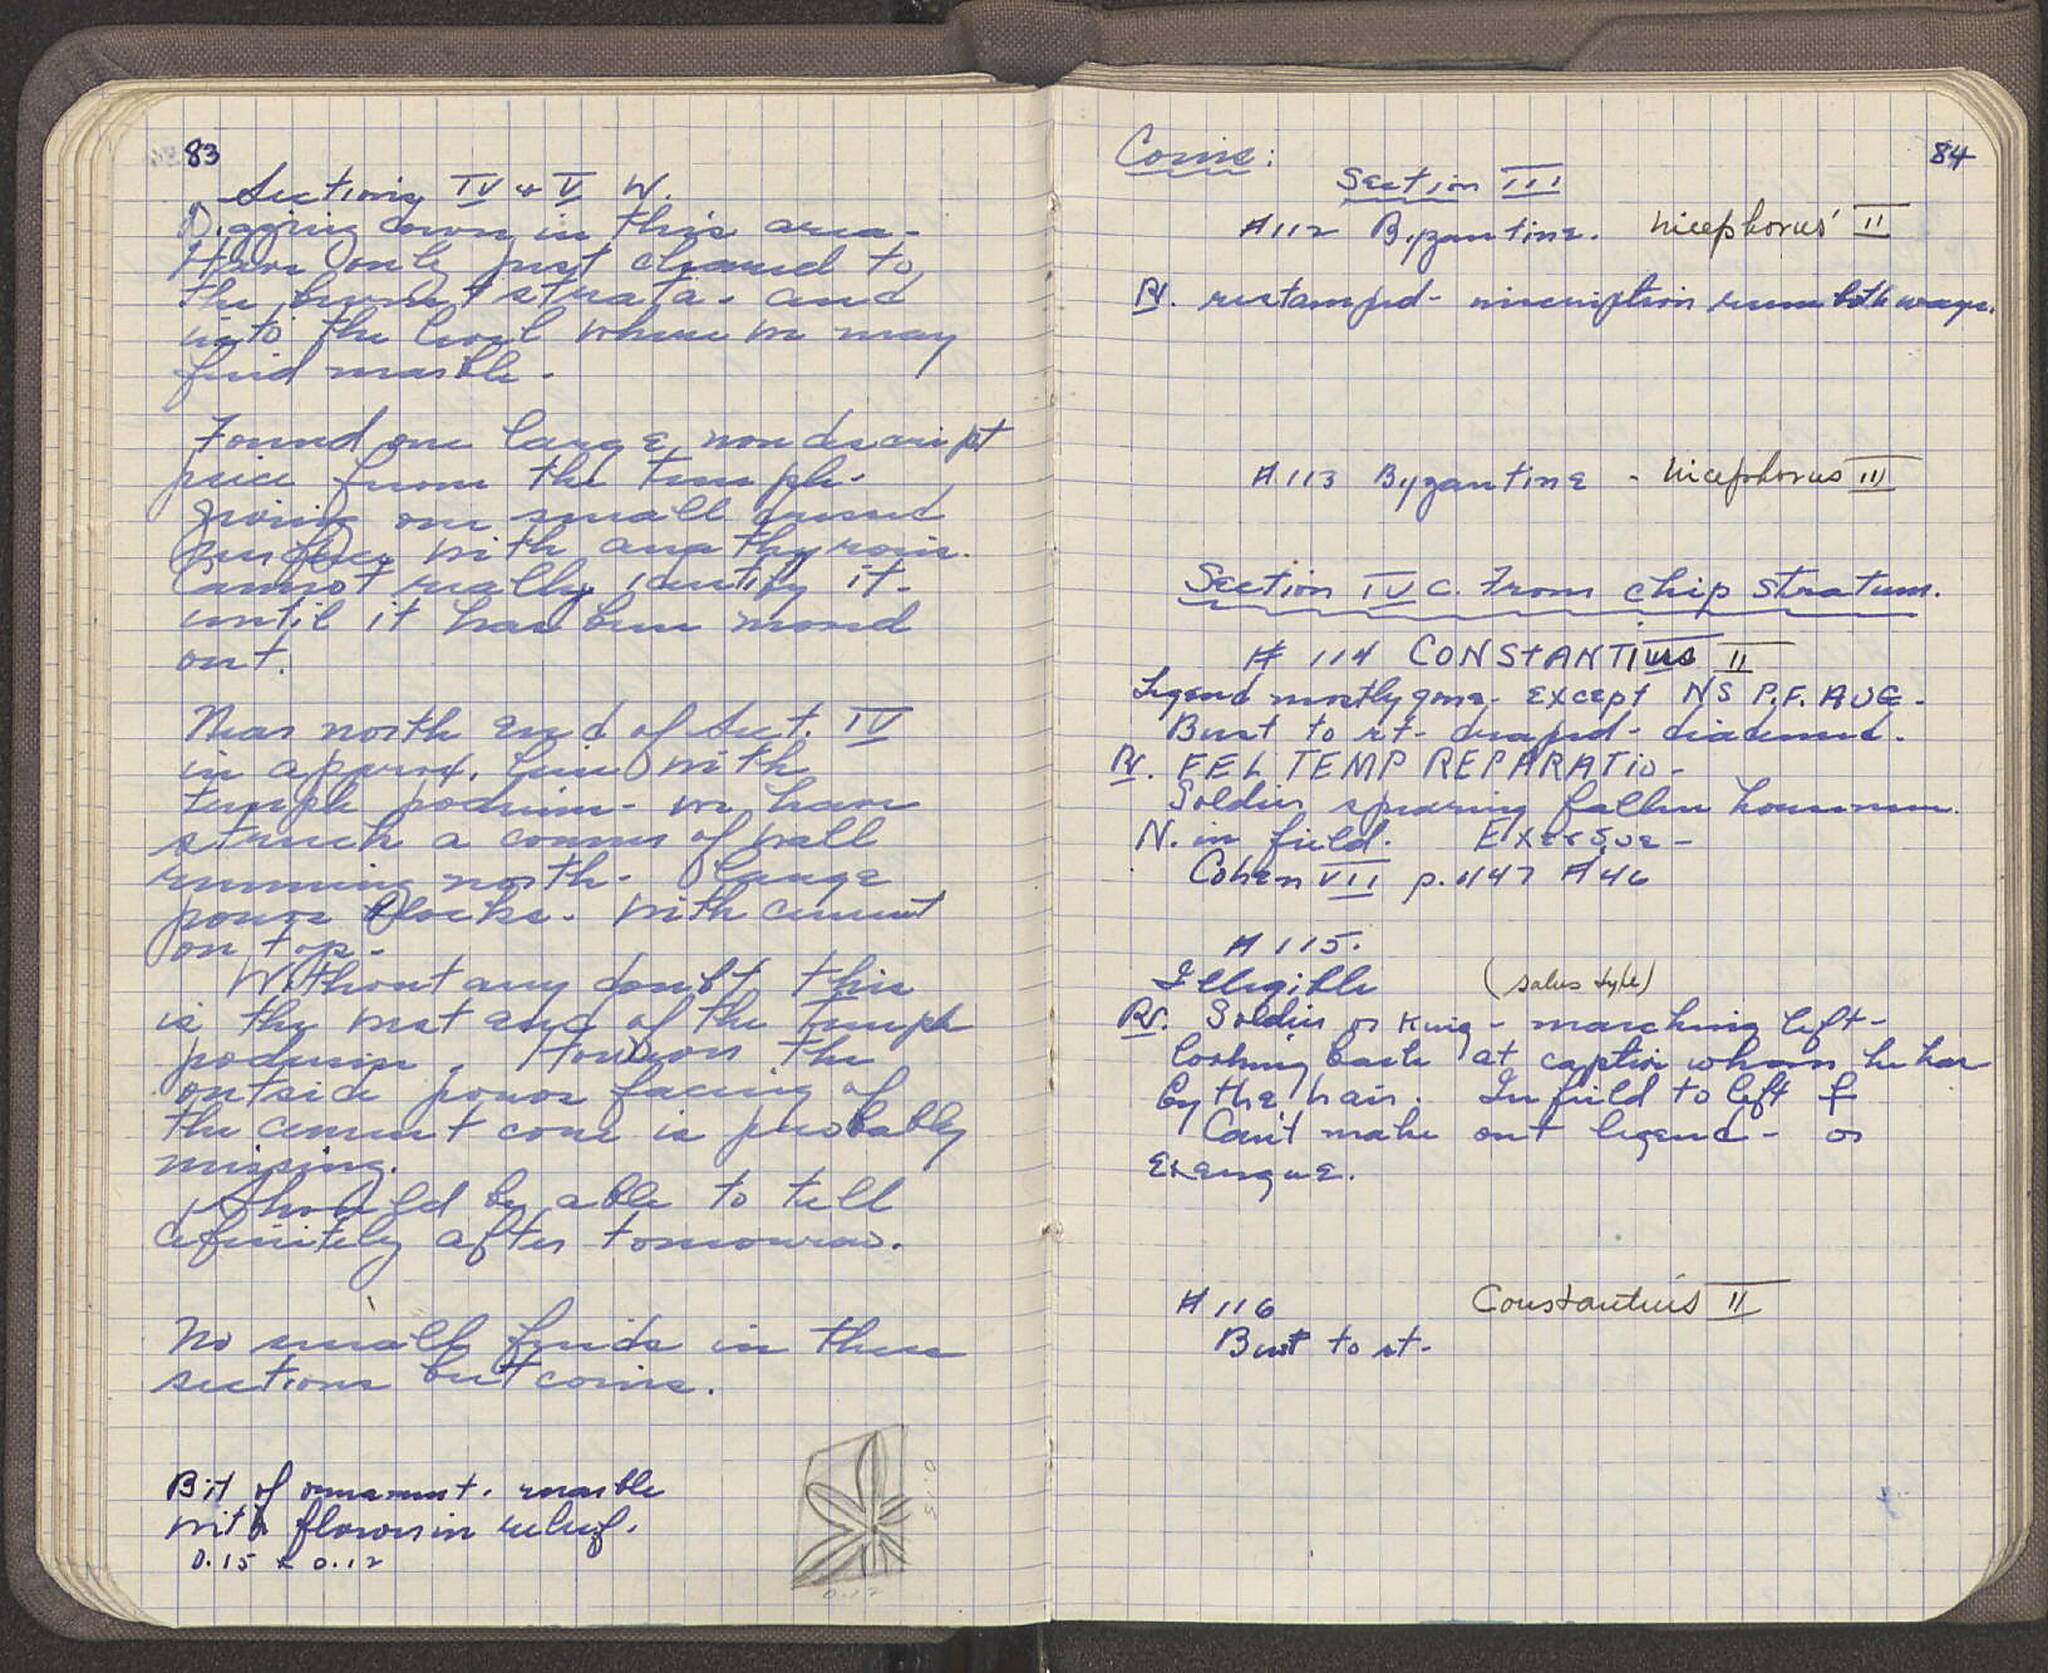 83
Sections IV & V W.
Digging down in this area -
Have only just cleaned to
the burnt strata - and
into the level where we may
find marble -
Found one large nondescript
piece from the temple -
giving one small curved
surface with anathyrosis.
Cannot really identify it -
until it has been moved
out.
Near north end of Sect. IV
in approx. line with
temple podium - we have
struck a corner of wall
running north - large
poros blocks - with cement
on top -
Without any doubt this
is the west end of the temple
podium. However the
outside poros facing of
the cement core is probably
missing.
Should be able to tell
definitely after tomorrow.
No small finds in these
sections but coins.
Bit of ornament. marble
with flower in relief.
0.15 x 0.12
0.15
0.12
84
Coins:
Section III
#112 Byzantine. Nicephorus II
Rv. restamped - inscription runs both ways.
#113 Byzantine - Nicephorus III
Section IV C. From chip stratum.
# 114 CONSTANTIus II
Legend mostly gone - except NS P.F. AUG -
Bust to rt - draped - diademed.
Rv. FEL TEMP REPARATIO -
Soldier spearing fallen horseman.
N. in field. Exergue -
Cohen VII p. 447 #46
#115.
Illegible (Salus type)
Rv. Soldier or King - marching left -
looking back at captive whom he has
by the hair. In field to left
Can't make out legend - or
Exergue.
#116 Constantius II
Bust to rt -